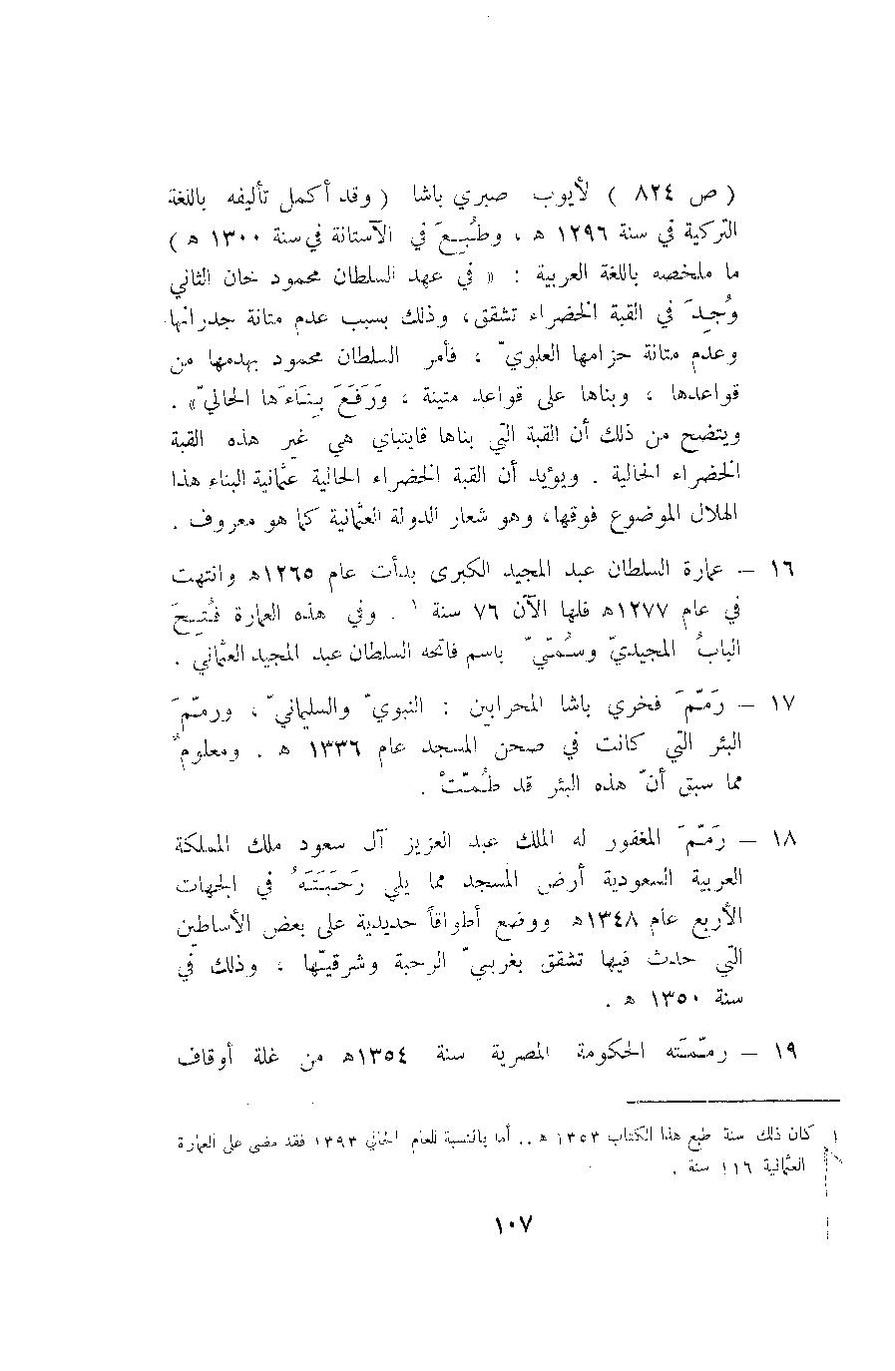 ( ص ٨٢٤ ) لأيوب صبري باشا ( وقد أكمل تأليفه باللغة
التركية في سنة ١٢٩٦ ه ، وطُبِعَ في الآستانة في سنة ١٣٠٠ ه )
ما ملخصه باللغة العربية : « في عهد السلطان محمود خان الثاني
وُجِدَ في القبة الخضراء تشقق، وذلك بسبب عدم متانة جدرانها.
وعدم متانة حزامها العلويّ ، فأمر السلطان محمود بهدمها من
قواعدها ، وبناها على قواعد متينة ، وَرَفَعَ بِنَاءَها الحاليّ» .
ويتضح من ذلك أن القبة التي بناها قايتباي هي غير هذه القبة
الخضراء الحالية . ويؤيد أن القبة الخضراء الحالية عثمانية البناء هذا
الهلال الموضوع فوقها، وهو شعار الدولة العثمانية كما هو معروف .
١٦ – عمارة السلطان عبد المجيد الكبرى بدأت عام ١٢٦٥ه وانتهت
في عام ١٢٧٧ه فلها الآن ٧٦ سنة ١ . وفي هذه العمارة فُتِحَ
البابُ المجيديّ وسُمّيَ باسم فاتحه السلطان عبد المجيد العثماني .
١٧ – رَمّمَ فخري باشا المحرابين : النبويّ والسليمانيّ ، ورمّمَ
البئر التي كانت في صحن المسجد عام ١٣٣٦ ه . ومعلومٌ
مما سبق أنّ هذه البئر قد طُمّتْ .
١٨ – رَمّمَ المغفور له الملك عبد العزيز آل سعود ملك المملكة
العربية السعودية أرض المسجد مما يلي رَحَبَتَهُ في الجهات
الأربع عام ١٣٤٨ه ووضع أطواقاً حديدية على بعض الأساطين
التي حدث فيها تشقق بغربيّ الرحبة وشرقيّها ، وذلك في
سنة ١٣٥٠ ه .
١٩ – رمّمَته الحكومة المصرية سنة ١٣٥٤ه من غلة أوقاف
١ كان ذلك سنة طبع هذا الكتاب ١٣٥٣ ه .. أما بالنسبة للعام الحالي ١٣٩٣ فقد مضى على العمارة
العثمانية ١١٦ سنة .
١٠٧